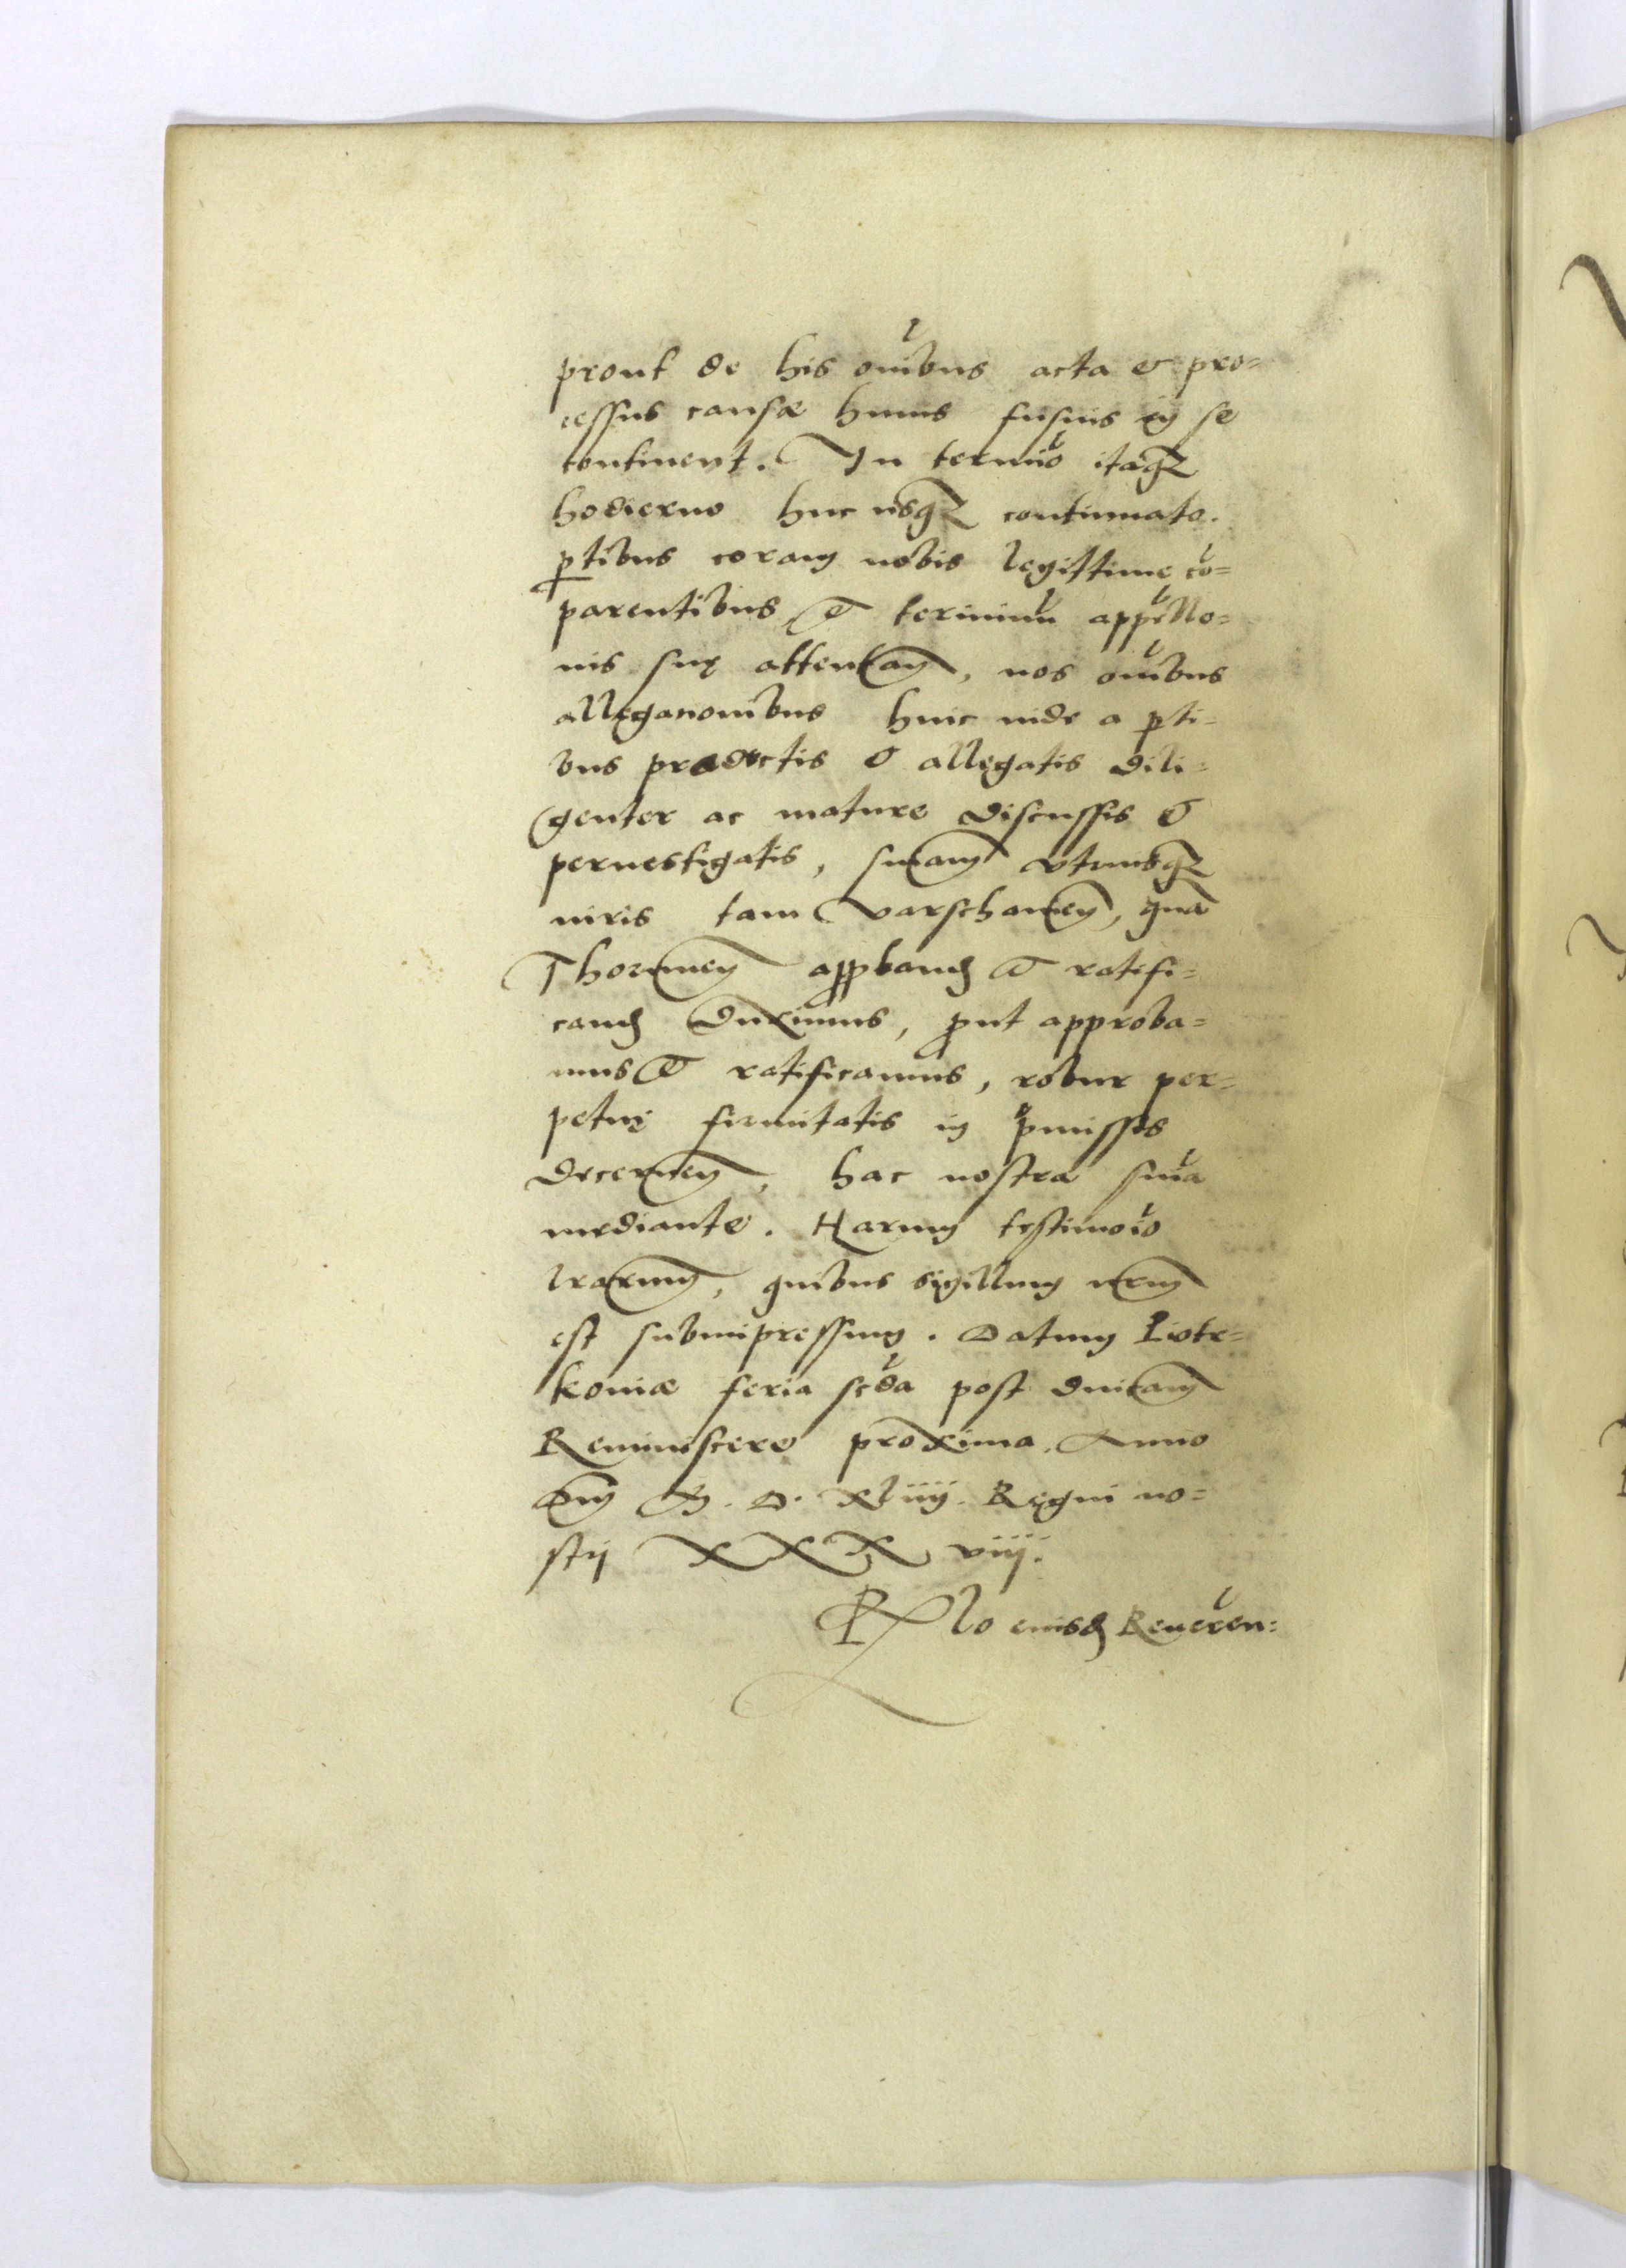 prout de his om̃ibus acta & pro=
cessus causæ huius fusius in se
continent. In termĩo itaqz
hodierno huc usqz continuato.
ꝑtibus coram nobis legittime cõ=
parentibus et terminũ appellõ=
nis suę attentan̄, nos om̃ibus
allegationibus hinc inde a ꝑti=
bus productis & allegatis dili=
genter ac mature discussis &
peruestigatis, sn̄iam utriusqz
iuris tam Varschauien̄, quã
Thorunien̄ aꝓband et ratifi=
cand duximus, ꝓut approba=
mus et ratificamus, robur per=
petuę firmitatis in p̄missis
decernen̄, hac nostra sñia
mediante. Harum testimoĩo
lr̄arum, quibus sigillum nr̄um
est subimpressum. Datum Piotr=
koniæ feria scd̃a post dn̄icam
Reminiscere proxima. Anno
Dn̄i M. D. xliiij. Regni no=
strj XXX viij.
R̃lo eiusd Reueren̄: